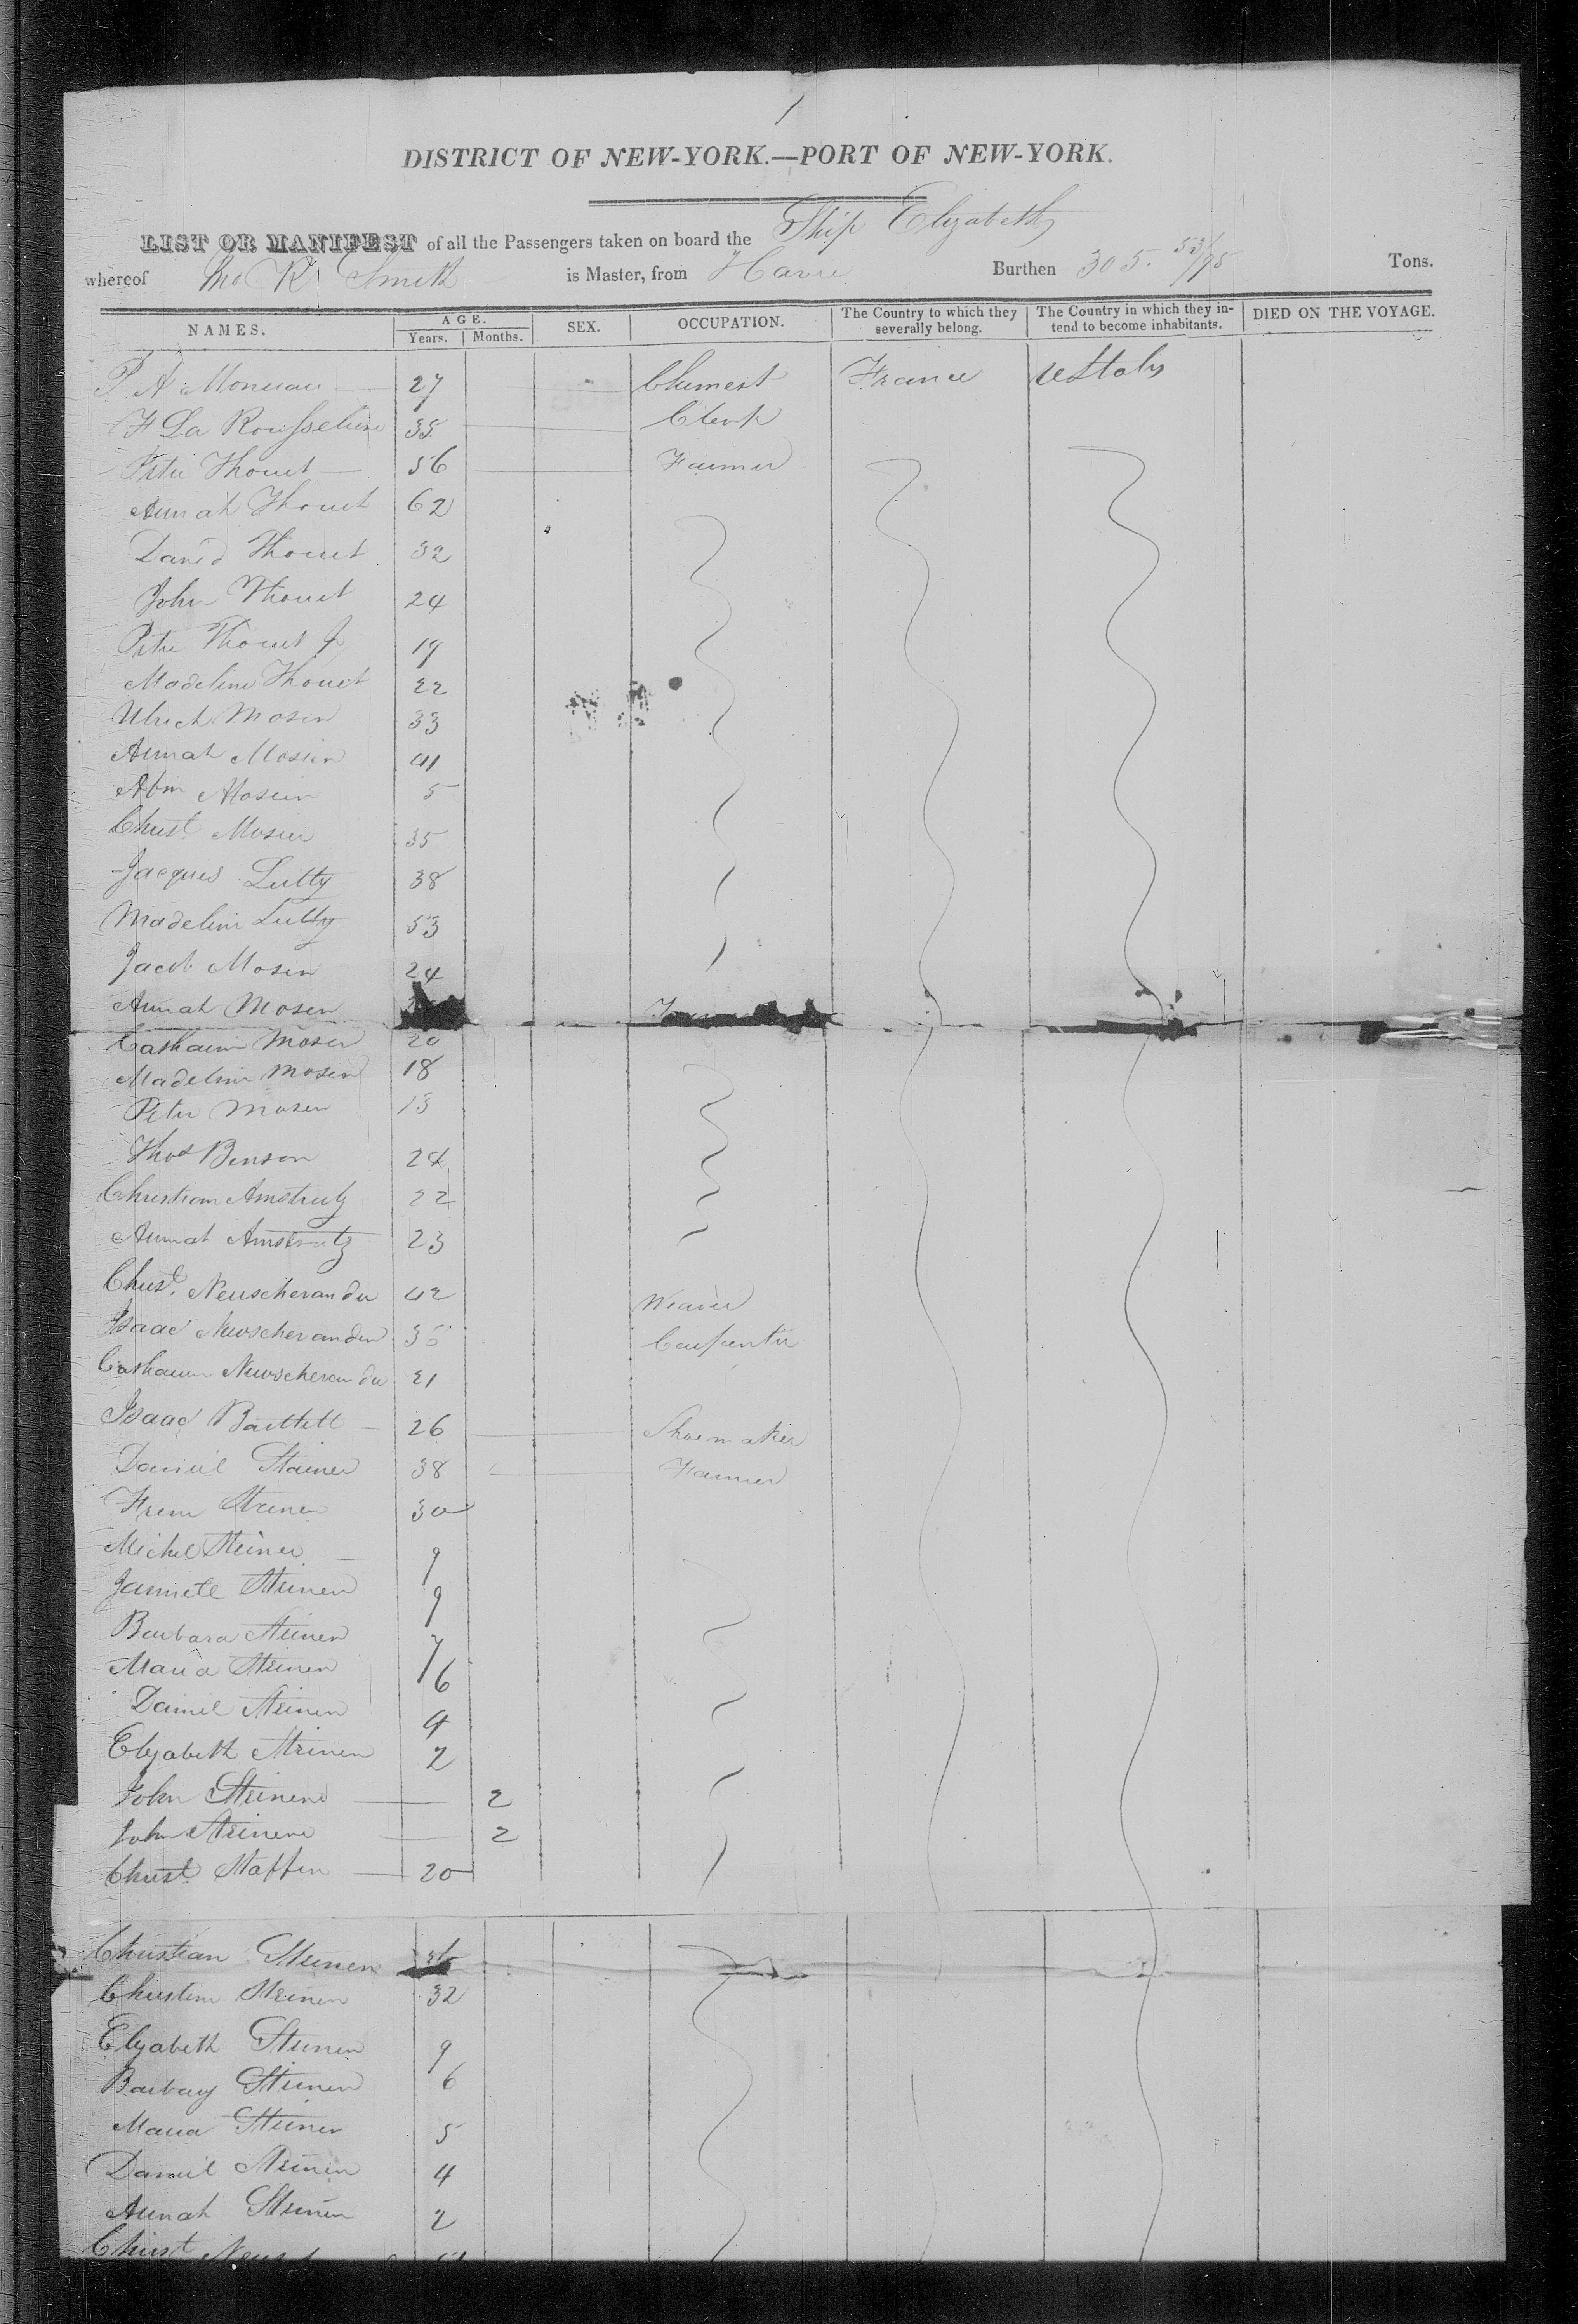 1
DISTRICT OF NEW-YORK.—PORT OF NEW-YORK.
LIST OR MANIFEST of all the Passengers taken on board the Ship Elizabeth
whereof R Smith is Master, from Havre Burthen 305. 53/95 Tons.
NAMES. AGE. Years. Months. SEX. OCCUPATION. The Country to which they severally belong. The Country in which they intend to become inhabitants. DIED ON THE VOYAGE.
P A Monuau 27 Chemest France UStates
F La Rousseliere 35 Clerk
Peter Thouet 56 Farmer
Annah Thouet 62
David Thouet 32
John Thouet 24
Peter Thouet Jr 19
Madeline Thouet 22
Ulrich Moser 33
Annah Moser 41
Abm Moser 5
Christ Moser 35
Jacques Lutty 38
Madelin Lutty 53
Jacob Moser 24
Annah Moser
Catharin Moser 20
Madelin Moser 18
Peter Moser 13
Thos Benson 24
Christian Amstutz 22
Annah Amstutz 23
Christ. Neuscherander 42 Weaver
Isaac Neuscherander 35 Carpenter
Catharin Neuscherander 21
Isaac Bartlett 26 Shoemaker
Daniel Stainer 38 Farmer
Steiner 30
Michel Steiner 9
Jannett Steiner 9
Barbara Steiner 7
Maria Steiner 6
Daniel Steiner 4
Elizabeth Steiner 2
John Steiner 2
John Steiner 2
Christ Staffen 20
Christian Steiner
Christin Steiner 32
Elizabeth Steiner 9
Barbary Steiner 6
Maria Steiner 5
Daniel Steiner 4
Annah Steiner 2
Christ